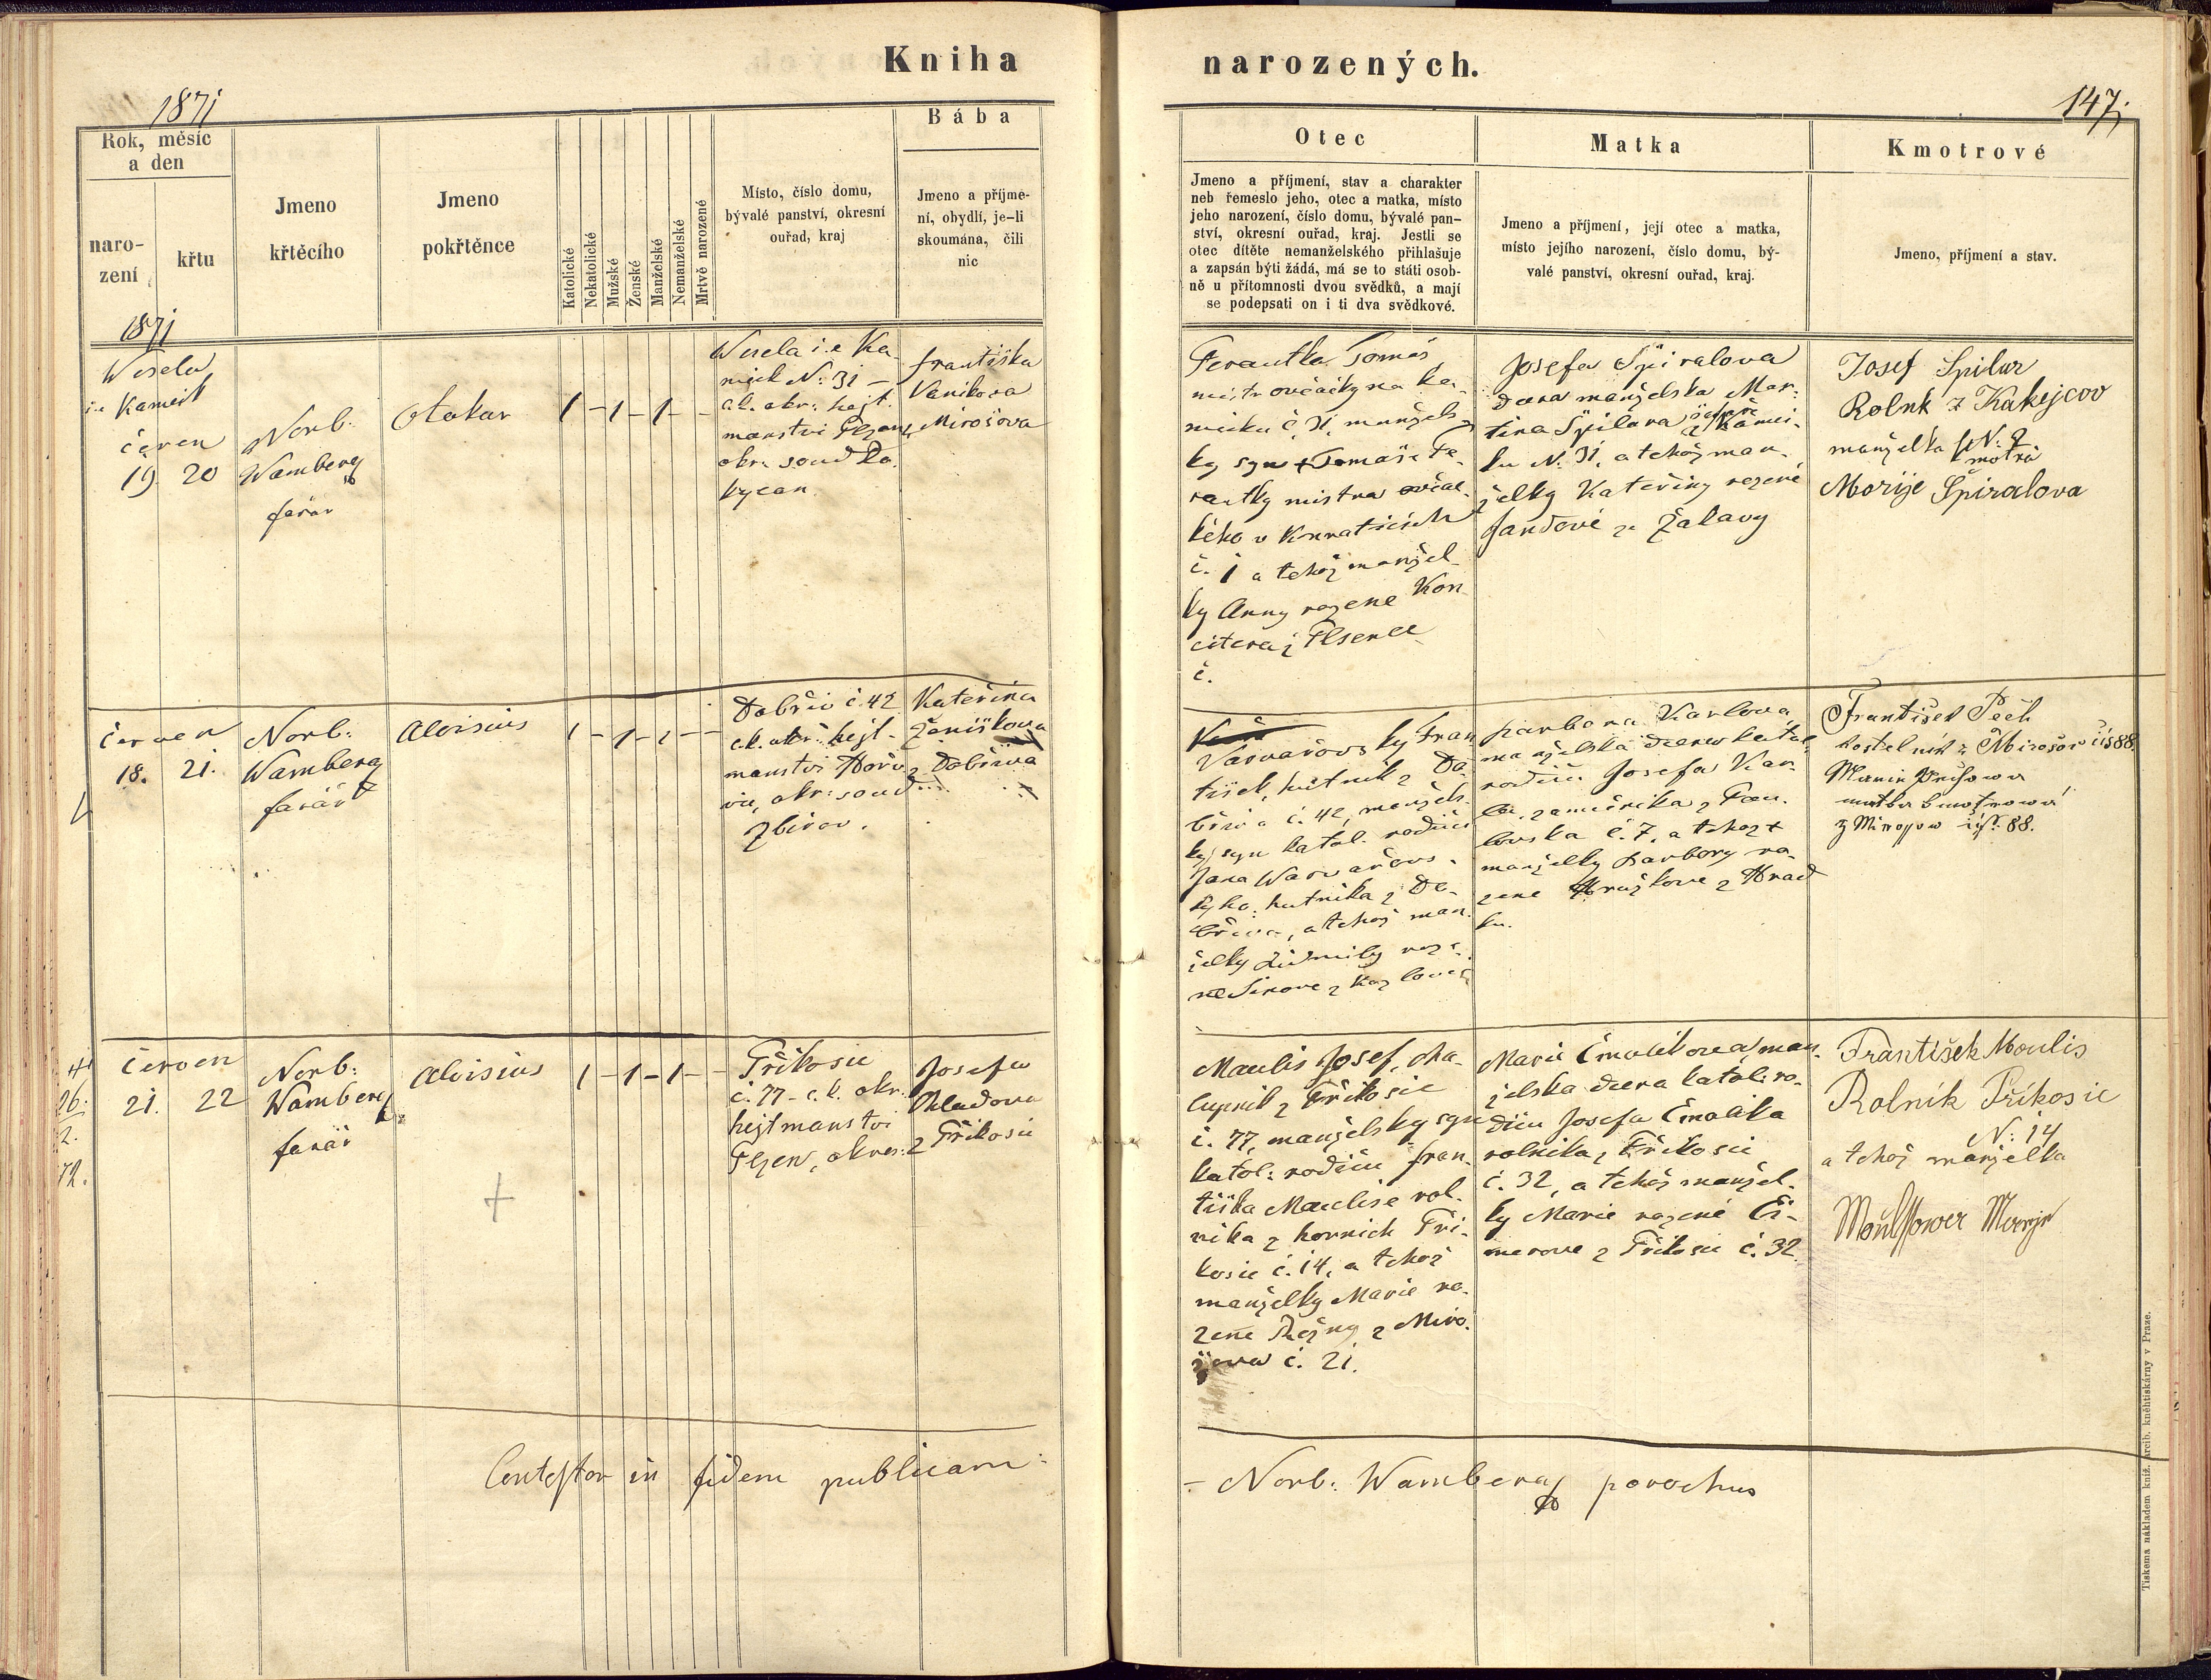 Kniha narozených.
1871
147.
Rok, měsíc
a den
naro-
zení
křtu
Jmeno
křtěcího
Jmeno
pokřtěnce
Katolické
Nekatolické
Mužské
Ženské
Manželské
Nemanželské
Mrtvě narozené
Místo, číslo domu,
bývalé panství, okresní
ouřad, kraj
Bába
Jmeno a příjme-
ní, obydlí, je-li
skoumána, čili
nic
Otec
Jmeno a příjmení, stav a charakter
neb řemeslo jeho, otec a matka, místo
jeho narození, číslo domu, bývalé pan-
ství, okresní ouřad, kraj. Jestli se
otec dítěte nemanželského přihlašuje
a zapsán býti žádá, má se to státi osob-
ně u přítomnosti dvou svědků, a mají
se podepsati on i ti dva svědkové.
Matka
Jmeno a příjmení, její otec a matka,
místo jejího narození, číslo domu, bý-
valé panství, okresní ouřad, kraj.
Kmotrové
Jmeno, příjmení a stav.
1871
Wesela
i.e Kameik
červen
19 20
Norb.
Wamberg
farář
Otokar
1 - 1 - 1 - -
Wesela i.e Ka-
meik N: 31 -
c.k. okr: hejt.
manstvi Plzen,
okr. soud Ro.
kycan.
Františka
Vanikova
z Mirošova
Ferautka Tomáš
mistr ovčácky na Ka-
meiku č. 31, manžels-
ky syn Tomáše Fe-
rautky mistra ovčác-
kého v Kunraticích
č. 1 a tehož manžel-
ky Anny rozene Kon
citera z Plsence
č.
Josefa Špiralova
dcera manželska Mar-
tina Špilara šafáře z Kamei-
ku N. 31, a tehož man-
želky Kateřiny rozené
Jandové ze Žalavy
Josef Spilur
Rolnk z Kakejcov
manželka N: 2.
kmotra
Morije Spiralova
červen
18. 21.
Norb:
Wamberg
farář
Aloisius
1 - 1 - 1 - -
Dobřiv č. 42
c.k. okr: hejt-
manstvi Hořo
vic, okr: soud
Zbirov.
Kateřina
Ženiškova
z Dobřiva
Varvařovsky Fran
tišek, hutnik z Do-
břiva č. 42, manžels-
ky syn katol. rodičů
Jana Warvařovs-
kyho, hutnika z Do-
břiva, a tehož man-
želky Ludmily roze-
ne Sirove z Kozlovic
Barbora Karlova
manželska dcera katol.
rodičů Josefa Kar-
la, zamečnika z Pav-
lovska č. 7, a tehož
manželky Barbory ro-
zene Hružkove z Hrad
ku.
František Pech
kostelník z Mirošov čís 88.
z Mirossow čís: 88.
26.
2.
72.
červen
21. 22
Norb:
Wamberg
farář
Aloisius
1 - 1 - 1 - -
Přikosic
č. 77 - c.k. okr.
hejtmanstvi
Plzen, okres:
Josefa
Chladova
z Přikosic
Maulis Josef, cha-
lupnik z Přikosic
č. 77, manželsky syn
katol: rodičů Fran-
tiška Maulise rol-
nika z hornich Při-
kosic č. 14, a tehož
manželky Marie ro-
zene Režny z Miro-
šova č. 21.
Marie Čmolikova, man-
želska dcera katol: ro-
dičů Josefa Čmolika
rolnika z Přikosic
č. 32, a tehož manžel-
ky Marie rozené Či-
merove z Přikosic č. 32.
František Moulis
Rolník Příkosic
N: 14
a tehož manželka
Moulissower Marye
Contestor in fidem publicam:
- Norb: Wamberg parochus
Tiskema nákladem kniž. arcib. kněhtiskárny v Praze.